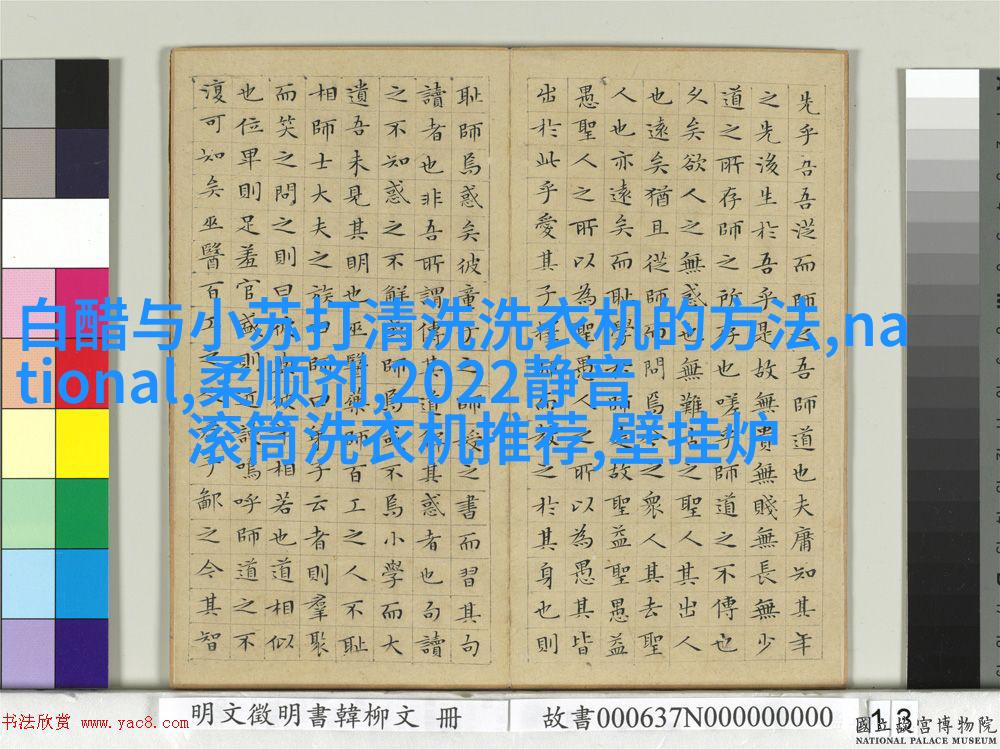 先乎吾吾從而師之吾師道也夫庸知其年
之先後生於吾乎是故無貴無賤無長無少
道之所存師之所存也嗟乎師道之不傳也
久矣欲人之無惑也難矣之聖人其出人
也遠矣猶且從師而問焉之眾人其去聖
人也亦遠矣而恥學於師故聖益聖愚益
愚聖人之所以為愚人之所以為愚其皆
出於此乎愛其子擇而教之於其身也則
恥師焉惑矣彼童子之授之書而習其句
讀者也非吾所謂傳其道其惑者也句讀
之不知惑之不解師焉或不焉小學而大
遺吾未見其明也巫醫樂師百工之人不恥
相師士大夫之族曰師曰弟子云者則羣聚
而笑之問之則曰彼彼相若也道相似
也位卑則足羞官盛則近諛嗚呼師道之不
復可知矣巫醫百工之子鄙之今其智
白醋与小苏打清洗洗衣机的方法,na
tional,柔顺剂,2022静音
滚筒洗衣机推荐,壁挂炉
明文徵明書韓柳文 冊
故書000637N000000000
13
書法欣赏 www.yac8.com
國立故宮博物院
NATIONAL PALACE MUSEUM